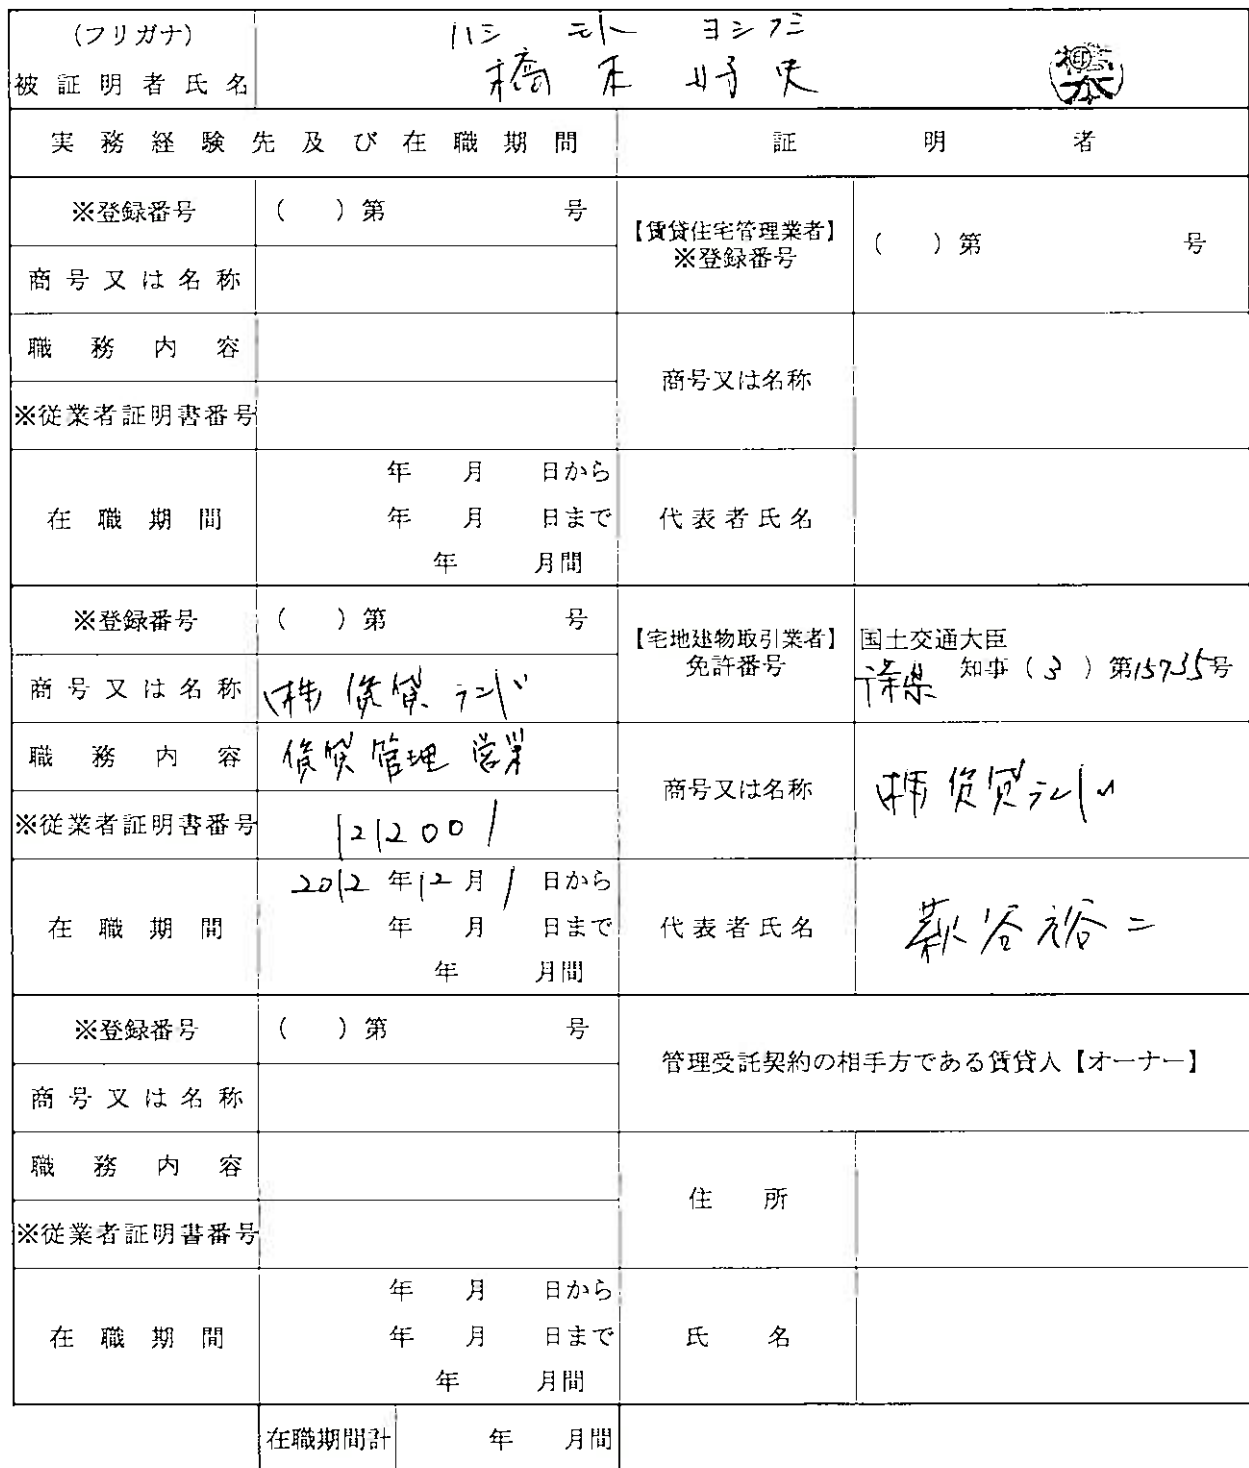 (フリガナ) ハシ モト ヨシフミ
被証明者氏名 橋本 好史
実務経験先及び在職期間 証明者
※登録番号 ( )第 号
【賃貸住宅管理業者】
※登録番号 ( )第 号
商号又は名称
職務内容
商号又は名称
※従業者証明書番号
在職期間
年 月 日から
年 月 日まで
年 月間
代表者氏名
※登録番号 ( )第 号
【宅地建物取引業者】
免許番号
国土交通大臣
千葉県 知事(3)第15735号
商号又は名称 (株)賃貸ランド
職務内容 賃貸管理 営業
商号又は名称 (株)賃貸ランド
※従業者証明書番号 1212001
在職期間
2012年12月1日から
年 月 日まで
年 月間
代表者氏名 萩谷裕二
※登録番号 ( )第 号
管理受託契約の相手方である賃貸人【オーナー】
商号又は名称
職務内容
住所
※従業者証明書番号
在職期間
年 月 日から
年 月 日まで
年 月間
氏名
在職期間計 年 月間